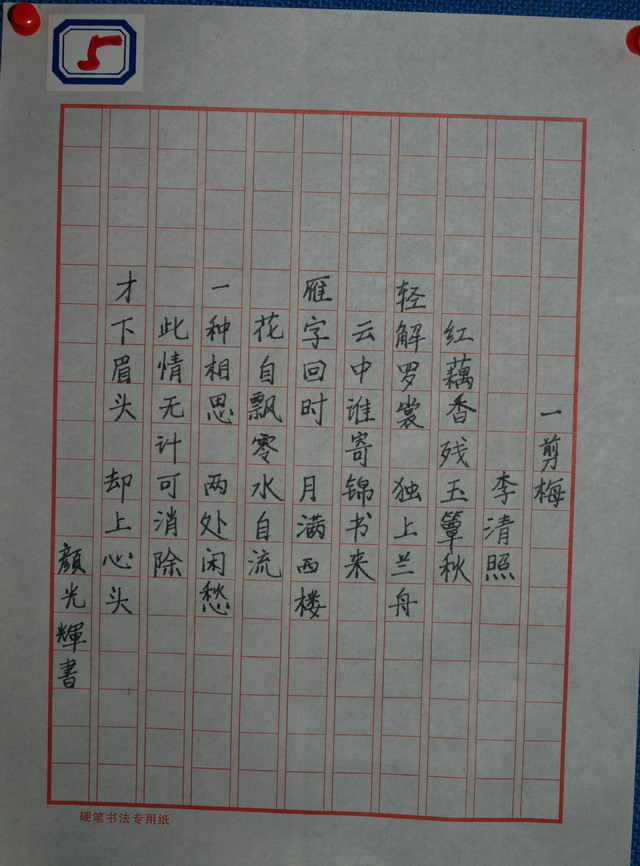 一剪梅
李清照
红藕香残玉簟秋
轻解罗裳 独上兰舟
云中谁寄锦书来
雁字回时 月满西楼
花自飘零水自流
一种相思 两处闲愁
此情无计可消除
才下眉头 却上心头
颜光輝書
硬笔书法专用纸